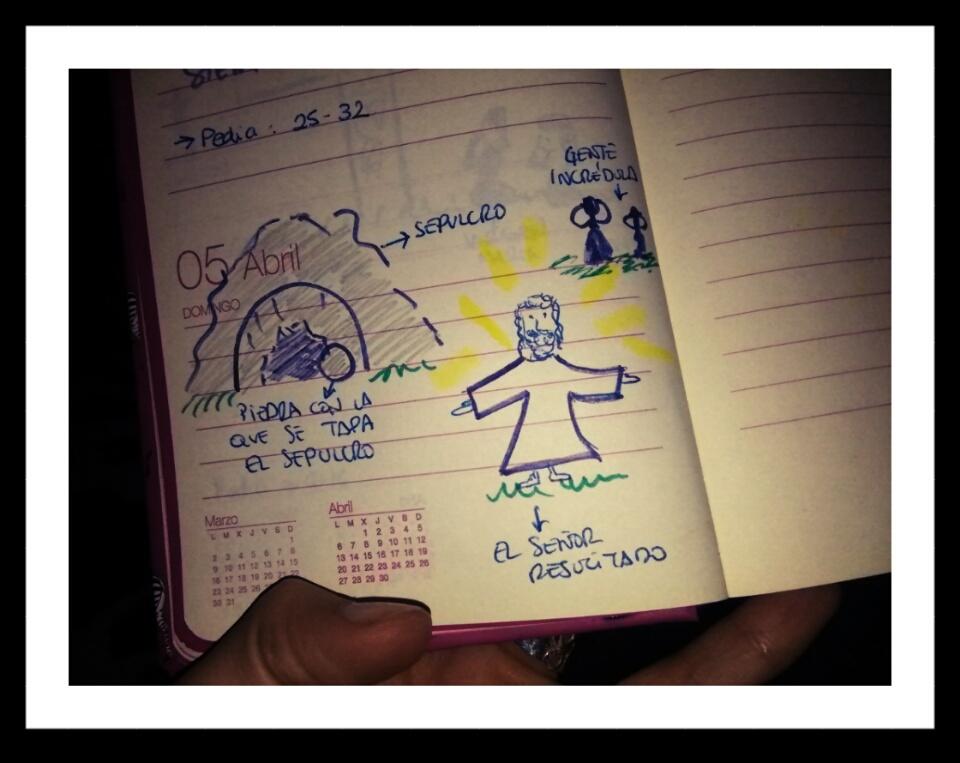 → Pedia : 25-32
GENTE
INCRÉDULA
SEPULCRO
05 Abril
DOMINGO
PIEDRA CON LA
QUE SE TAPA
EL SEPULCRO
EL SEÑOR
RESUCITADO
Marzo
L M X J V S D
1
2 3 4 5 6 7 8
9 10 11 12 13 14 15
16 17 18 19 20 21 22
23 24 25 26
30 31
Abril
L M X J V S D
1 2 3 4 5
6 7 8 9 10 11 12
13 14 15 16 17 18 19
20 21 22 23 24 25 26
27 28 29 30